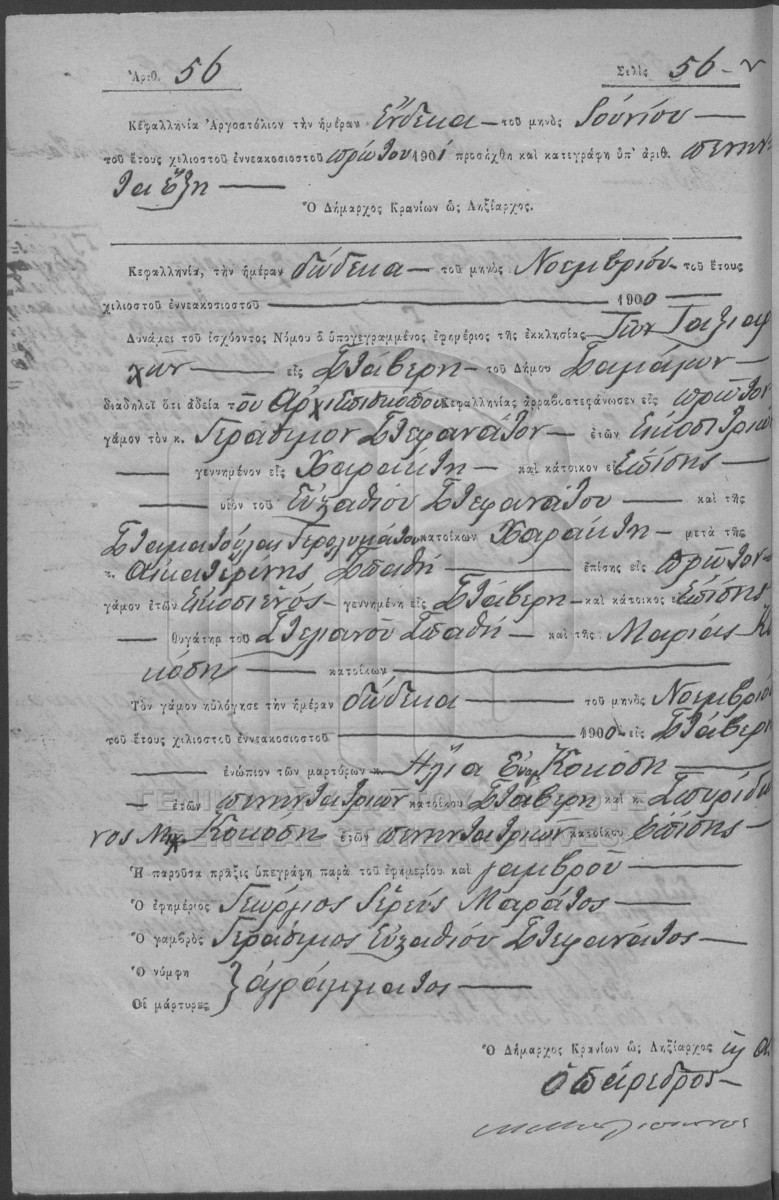 Ἀριθ. 56 Σελὶς 56
Κεφαλληνία Ἀργοστόλιον τὴν ἡμέραν ἕνδεκα — τοῦ μηνὸς Ἰουνίου —
τοῦ ἔτους χιλιοστοῦ ἐννεακοσιοστοῦ πρώτου 1901 προσήχθη καὶ κατεγράφη ὑπ' ἀριθ. πενήν
τα ἕξη —
Ὁ Δήμαρχος Κρανίων ὡς Ληξίαρχος.
Κεφαλληνία, τὴν ἡμέραν δώδεκα — τοῦ μηνὸς Νοεμβρίου — τοῦ ἔτους
χιλιοστοῦ ἐννεακοσιοστοῦ — 1900 —
Δυνάμει τοῦ ἰσχύοντος Νόμου ὁ ὑπογεγραμμένος ἐφημέριος τῆς ἐκκλησίας Τῶν Ταξιαρ
χῶν — εἰς Στάβερη — τοῦ Δήμου Σαμαίων —
διαδηλοῖ ὅτι ἀδεία τοῦ Ἀρχιεπισκόπου Κεφαλληνίας ἀρραβοστεφάνωσεν εἰς πρῶτον
γάμον τὸν κ. Γεράσιμον Στεφανάτον — ἐτῶν εἰκοσιτριῶν
— γεννημένον εἰς Χαράκτη — καὶ κάτοικον εἰς ἐπίσης —
— υἱὸν τοῦ Εὐσταθίου Στεφανάτου — καὶ τῆς
Σταματούλας Γερολυμάτου κατοίκων Χαράκτη — μετὰ τῆς
κ. Αἰκατερίνης Σπαθῆ — ἐπίσης εἰς πρῶτον —
γάμον ἐτῶν εἰκοσιενός — γεννημένη εἰς Στάβερη — καὶ κάτοικος ἐπίσης
— θυγάτηρ τοῦ Στελιανοῦ Σπαθῆ — καὶ τῆς Μαρίας Κο
κόση — κατοίκων —
Τὸν γάμον ηὐλόγησε τὴν ἡμέραν δώδεκα — τοῦ μηνὸς Νοεμβρίου
τοῦ ἔτους χιλιοστοῦ ἐννεακοσιοστοῦ — 1900 — εἰς Στάβερη
— ἐνώπιον τῶν μαρτύρων κ. Ἠλία Κοκόση —
— ἐτῶν πενηντατριῶν κατοίκου Στάβερη καὶ κ. Σπυρίδω
νος Μιχ Κοκόση ἐτῶν πενηντατριῶν κατοίκου ἐπίσης —
Ἡ παροῦσα πρᾶξις ὑπεγράφη παρὰ τοῦ ἐφημερίου καὶ γαμβροῦ —
Ὁ ἐφημέριος Γεώργιος Ἱερεύς Μαράτος —
Ὁ γαμβρὸς Γεράσιμος Εὐσταθίου Στεφανάτος —
Ὁ νύμφη
Οἱ μάρτυρες } ἀγράμματος —
Ὁ Δήμαρχος Κρανίων ὡς Ληξίαρχος
ὁ πάρεδρος —
ΓΕΝΙΚΑ ΑΡΧΕΙΑ ΤΟΥ ΚΡΑΤΟΥΣ
GENERAL STATE ARCHIVES